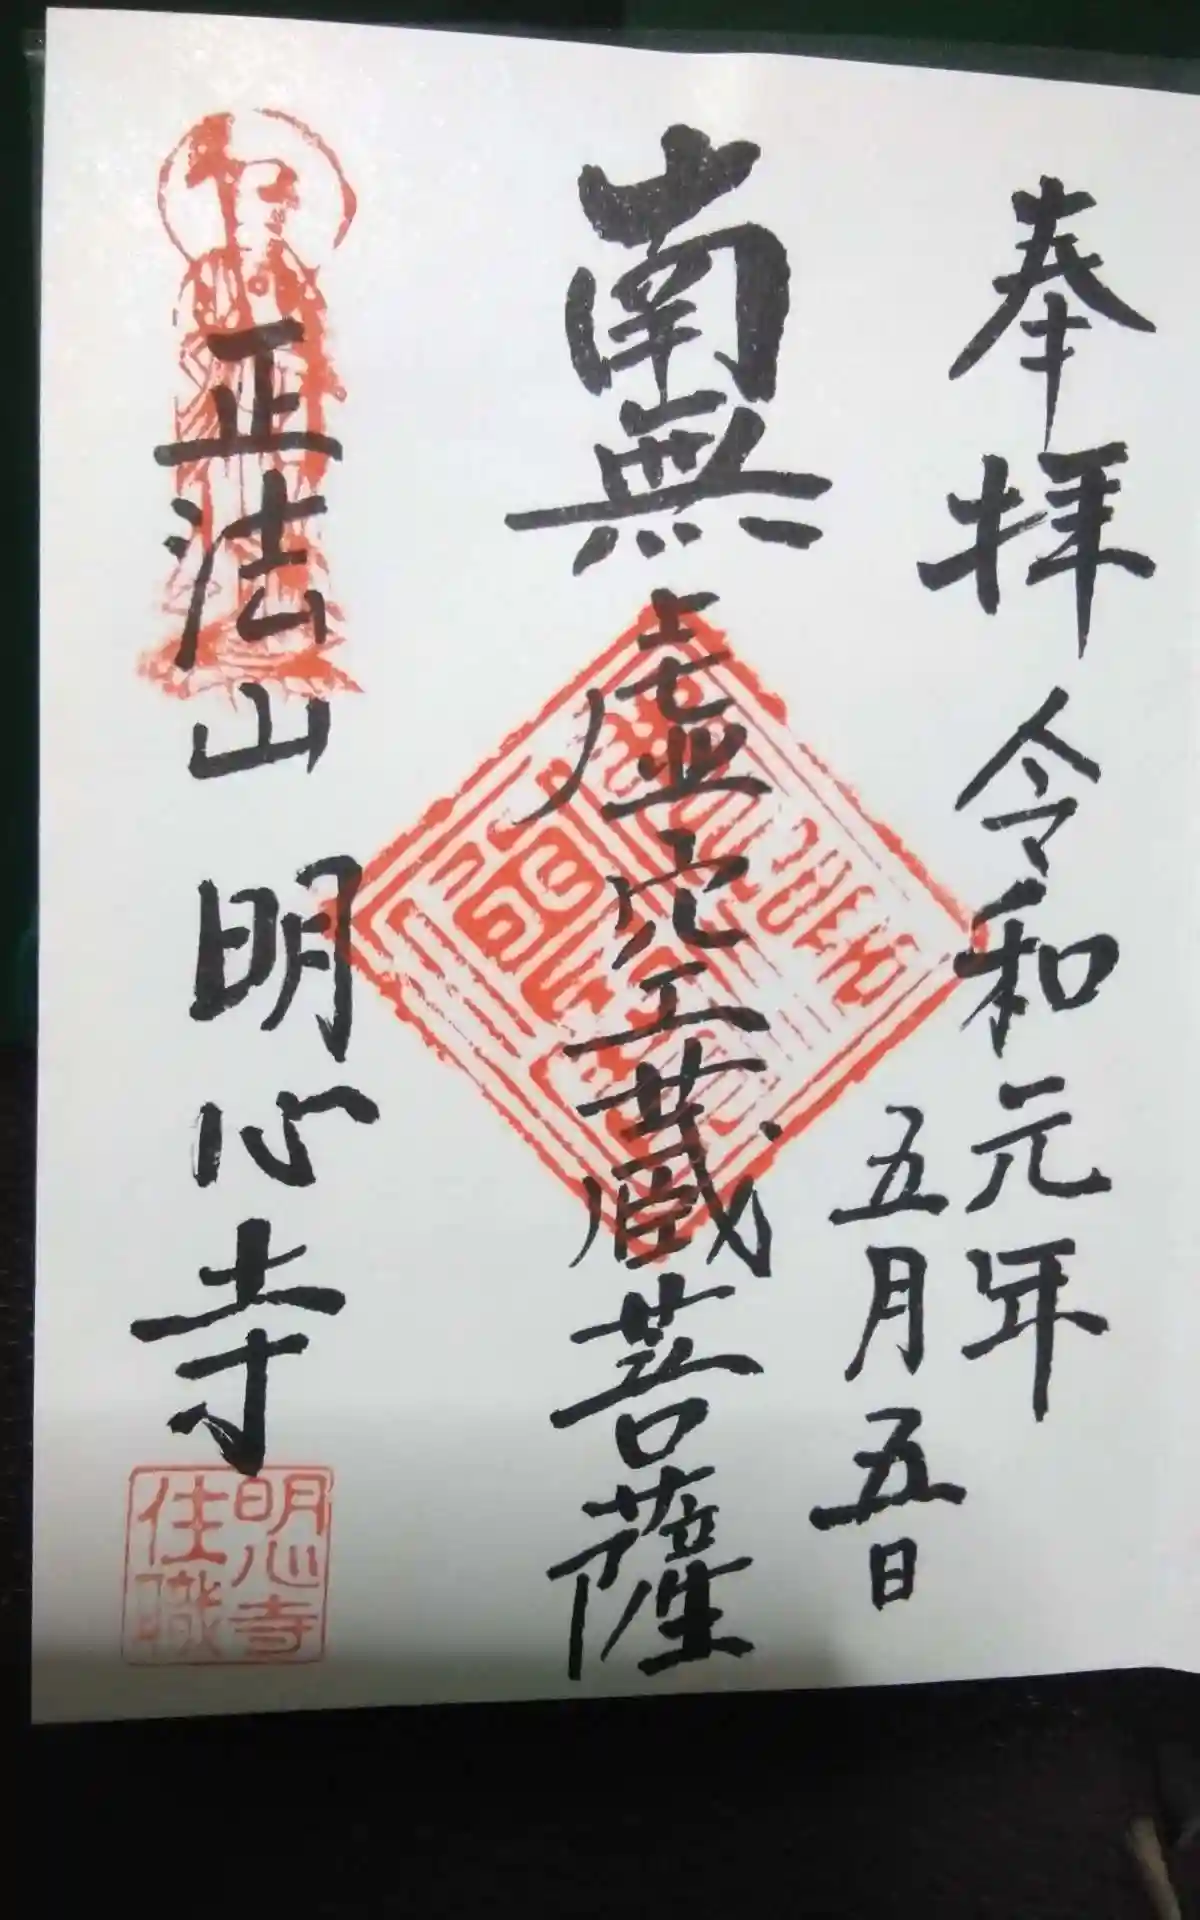 奉拝 令和元年
五月五日
南無虚空蔵菩薩
正法山 明心寺
明心寺
住職